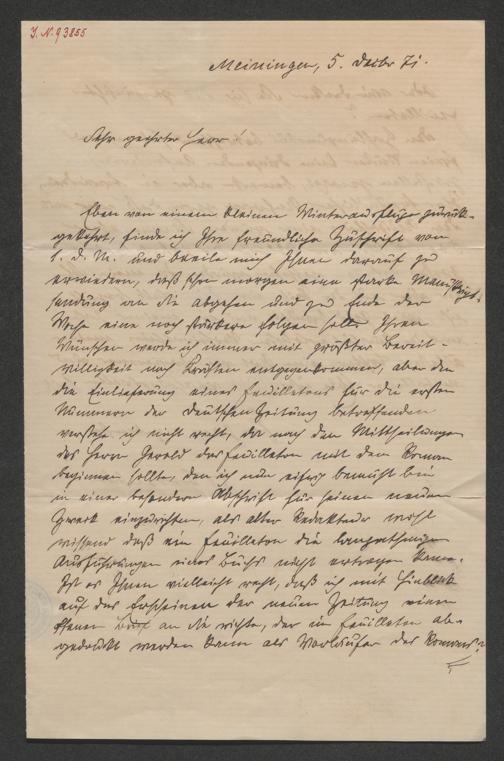 J. N. 93855
Meiningen, 5. Dzbr 71.
Sehr geehrter Herr!
Eben von einem kleinen Winterausfluge zurück-
gekehrt, finde ich Ihre freundliche Zuschrift vom
1. d. M. und beeile mich Ihnen darauf zu
erwiedern, daß schon morgen eine starke Manuskript-
sendung an Sie abgehen und zu Ende der
Woche eine noch stärkere folgen soll. Ihren
Wünschen werde ich immer mit größter Bereit-
willigkeit nach Kräften entgegenkommen, aber den
die Einlieferung eines Feuilletons für die ersten
Nummern der Deutschen Zeitung betreffenden
verstehe ich nicht recht, da nach den Mittheilungen
des Herrn Herold das Feuilleton mit dem Roman
beginnen sollte, den ich nun eifrig bemüht bin
in einer besondern Abschrift für seinen neuen
Zweck einzurichten, als alter Redakteur wohl
wissend daß ein Feuilleton die langathmigen
Ausführungen eines Buchs nicht ertragen kann.
Ist es Ihnen vielleicht recht, daß ich mit Hinblick
auf das Erscheinen der neuen Zeitung einen
offenen Brief an Sie richte, der im Feuilleton ab-
gedruckt werden kann als Vorläufer des Romans?